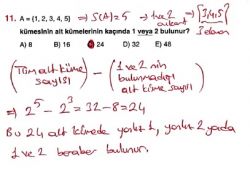 11. A = {1, 2, 3, 4, 5} ⇒ S(A)=5 ⇒ 1 ve 2 ⇒ {3,4,5}
kümesinin alt kümelerinin kaçında 1 veya 2 bulunur?
A) 8 B) 16 C) 24 D) 32 E) 48
(Tüm alt küme sayısı) - (1 ve 2 nin bulunmadığı alt küme sayısı)
⇒ 2^5 - 2^3 = 32-8 = 24
Bu 24 alt kümede yalnız 1, yalnız 2 yada
1 ve 2 beraber bulunur.